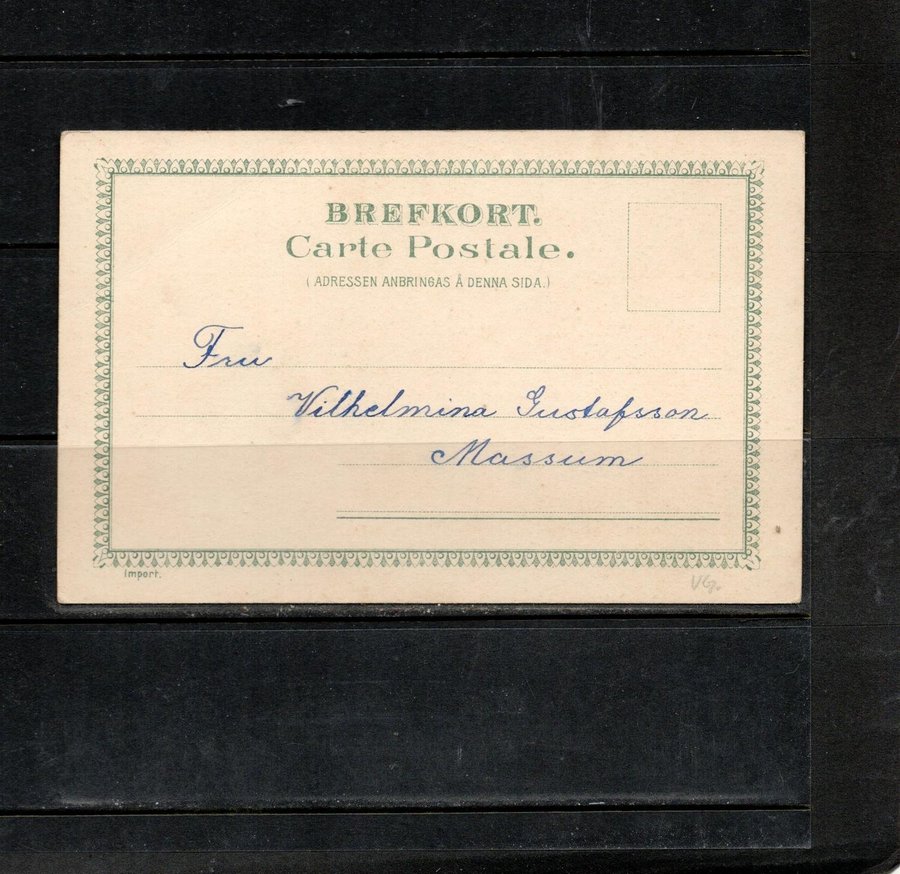 BREFKORT.
Carte Postale.
( ADRESSEN ANBRINGAS Å DENNA SIDA.)
Fru
Vilhelmina Gustafsson
Massum
Import.